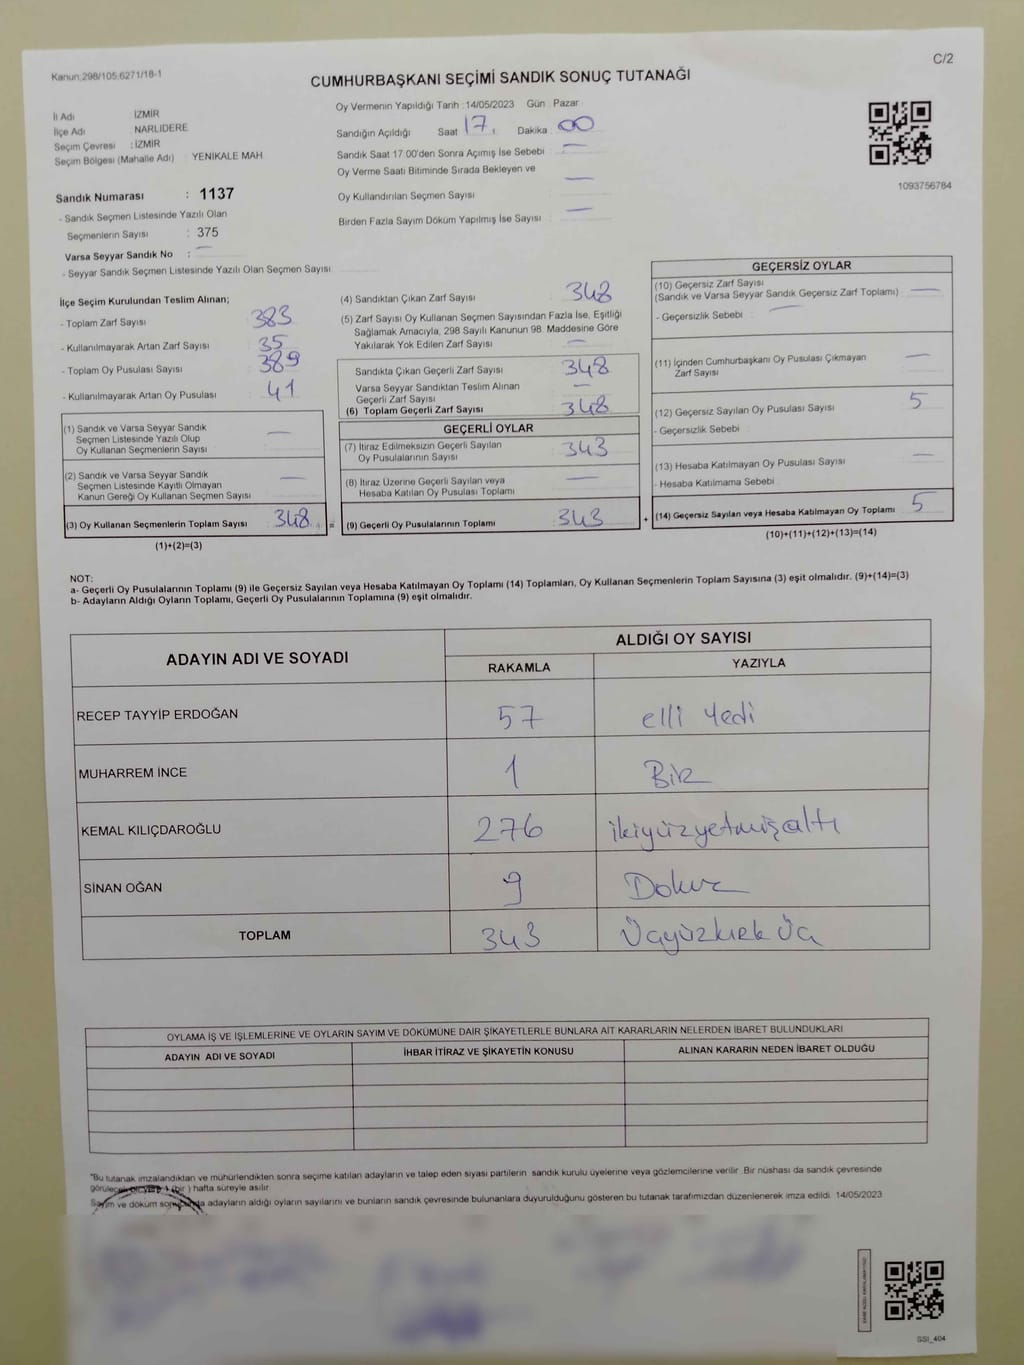 Kanun:298/105,6271/18-1
C/2
CUMHURBAŞKANI SEÇİMİ SANDIK SONUÇ TUTANAĞI
İl Adı İZMİR
İlçe Adı NARLIDERE
Seçim Çevresi : İZMİR
Seçim Bölgesi (Mahalle Adı) YENIKALE MAH
Sandık Numarası : 1137
- Sandık Seçmen Listesinde Yazılı Olan
Seçmenlerin Sayısı : 375
Varsa Seyyar Sandık No : —
- Seyyar Sandık Seçmen Listesinde Yazılı Olan Seçmen Sayısı
Oy Vermenin Yapıldığı Tarih : 14/05/2023 Gün : Pazar
Sandığın Açıldığı Saat 17 Dakika : 00
Sandık Saat 17:00'den Sonra Açımış İse Sebebi : —
Oy Verme Saati Bitiminde Sırada Bekleyen ve
Oy Kullandırılan Seçmen Sayısı —
Birden Fazla Sayım Döküm Yapılmış İse Sayısı —
1093756784
İlçe Seçim Kurulundan Teslim Alınan;
- Toplam Zarf Sayısı 383
- Kullanılmayarak Artan Zarf Sayısı 35
- Toplam Oy Pusulası Sayısı 389
- Kullanılmayarak Artan Oy Pusulası 41
(1) Sandık ve Varsa Seyyar Sandık
Seçmen Listesinde Yazılı Olup
Oy Kullanan Seçmenlerin Sayısı —
(2) Sandık ve Varsa Seyyar Sandık
Seçmen Listesinde Kayıtlı Olmayan
Kanun Gereği Oy Kullanan Seçmen Sayısı —
(3) Oy Kullanan Seçmenlerin Toplam Sayısı 348 =
(1)+(2)=(3)
(4) Sandıktan Çıkan Zarf Sayısı 348
(5) Zarf Sayısı Oy Kullanan Seçmen Sayısından Fazla İse, Eşitliği
Sağlamak Amacıyla, 298 Sayılı Kanunun 98. Maddesine Göre
Yakılarak Yok Edilen Zarf Sayısı —
Sandıkta Çıkan Geçerli Zarf Sayısı 348
Varsa Seyyar Sandıktan Teslim Alınan
Geçerli Zarf Sayısı —
(6) Toplam Geçerli Zarf Sayısı 348
GEÇERLİ OYLAR
(7) İtiraz Edilmeksizin Geçerli Sayılan
Oy Pusulalarının Sayısı 343
(8) İtiraz Üzerine Geçerli Sayılan veya
Hesaba Katılan Oy Pusulası Toplamı —
(9) Geçerli Oy Pusulalarının Toplamı 343 +
GEÇERSİZ OYLAR
(10) Geçersiz Zarf Sayısı
(Sandık ve Varsa Seyyar Sandık Geçersiz Zarf Toplamı) —
- Geçersizlik Sebebi : —
(11) İçinden Cumhurbaşkanı Oy Pusulası Çıkmayan
Zarf Sayısı —
(12) Geçersiz Sayılan Oy Pusulası Sayısı 5
- Geçersizlik Sebebi :
(13) Hesaba Katılmayan Oy Pusulası Sayısı —
- Hesaba Katılmama Sebebi :
(14) Geçersiz Sayılan veya Hesaba Katılmayan Oy Toplamı 5
(10)+(11)+(12)+(13)=(14)
NOT:
a- Geçerli Oy Pusulalarının Toplamı (9) ile Geçersiz Sayılan veya Hesaba Katılmayan Oy Toplamı (14) Toplamları, Oy Kullanan Seçmenlerin Toplam Sayısına (3) eşit olmalıdır. (9)+(14)=(3)
b- Adayların Aldığı Oyların Toplamı, Geçerli Oy Pusulalarının Toplamına (9) eşit olmalıdır.
ADAYIN ADI VE SOYADI
ALDIĞI OY SAYISI
RAKAMLA YAZIYLA
RECEP TAYYİP ERDOĞAN 57 elli Yedi
MUHARREM İNCE 1 Bir
KEMAL KILIÇDAROĞLU 276 ikiyüzyetmişaltı
SİNAN OĞAN 9 Dokuz
TOPLAM 343 Üçyüzkırk Üç
OYLAMA İŞ VE İŞLEMLERİNE VE OYLARIN SAYIM VE DÖKÜMÜNE DAİR ŞİKAYETLERLE BUNLARA AİT KARARLARIN NELERDEN İBARET BULUNDUKLARI
ADAYIN ADI VE SOYADI İHBAR İTİRAZ VE ŞİKAYETİN KONUSU ALINAN KARARIN NEDEN İBARET OLDUĞU
"Bu tutanak imzalandıktan ve mühürlendikten sonra seçime katılan adayların ve talep eden siyasi partilerin sandık kurulu üyelerine veya gözlemcilerine verilir. Bir nüshası da sandık çevresinde
1 (bir ) hafta süreyle asılır.
Sayım ve döküm adayların aldığı oyların sayılarını ve bunların sandık çevresinde bulunanlara duyurulduğunu gösteren bu tutanak tarafımızdan düzenlenerek imza edildi. 14/05/2023
SSI_404